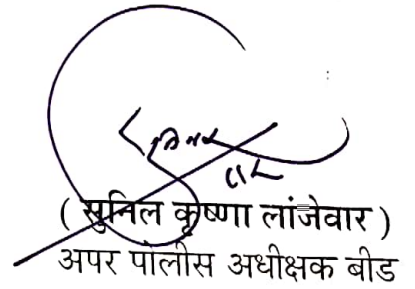 ( सुनिल कृष्णा लांजेवार )
अपर पोलीस अधीक्षक बीड